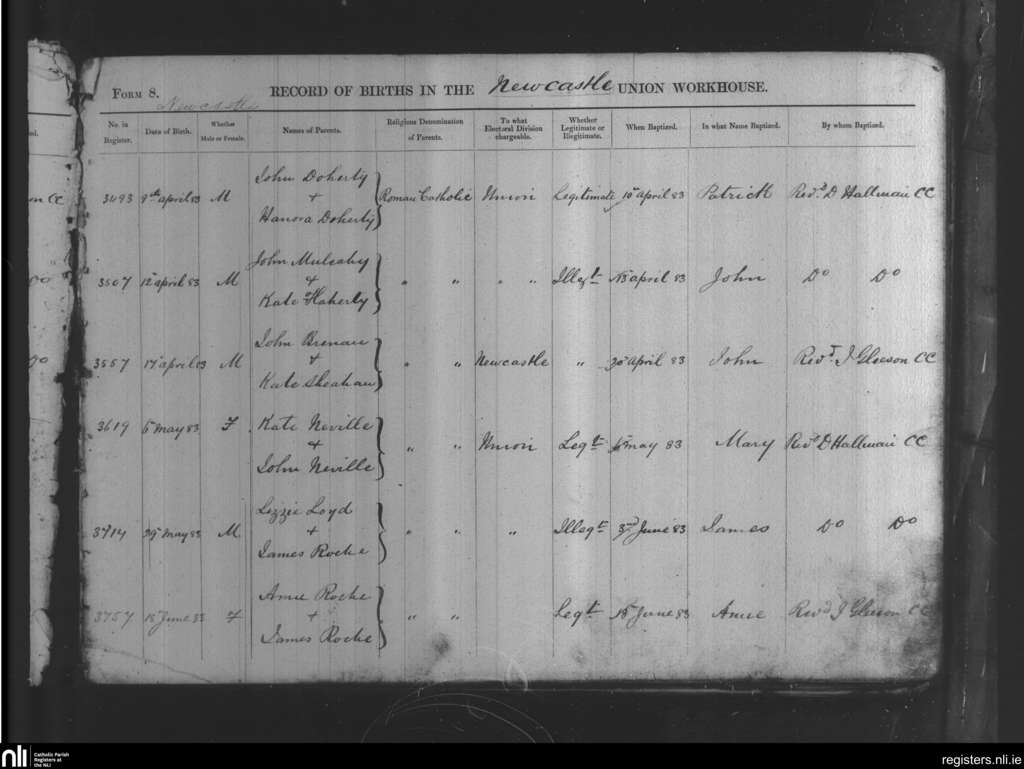 Form 8. RECORD OF BIRTHS IN THE Newcastle UNION WORKHOUSE.
Newcastle
No. in Register. Date of Birth. Whether Male or Female. Names of Parents. Religious Denomination of Parents. To what Electoral Division chargeable. Whether Legitimate or Illegitimate. When Baptized. In what Name Baptized. By whom Baptized.
John Doherty
CC 3493 9th april 83 M + Roman Catholic Union Legitimate 10 april 83 Patrick Revd. D Hallinan CC
Hanora Doherty
John Mulcahy
Do 3507 12 april 83 M + " " " " Illegt 13 april 83 John Do Do
Kate Flaherty
John Brenan
Do 3557 17 april 83 M + " " Newcastle " 30 april 83 John Revd. J Gleeson CC
Kate Sheahan
3619 May 83 F Kate Neville
+ " " Union Legt May 83 Mary Revd D Hallinan CC
John Neville
Lizzie Loyd
3714 29 May 83 M. + " " " Illegt 3rd June 83 James Do Do
James Roche
Annie Roche
3757 15 June 83 F + " " Legt 18 June 83 Annie Revd J Gleeson CC
James Roche
nli Catholic Parish Registers at the NLI
registers.nli.ie